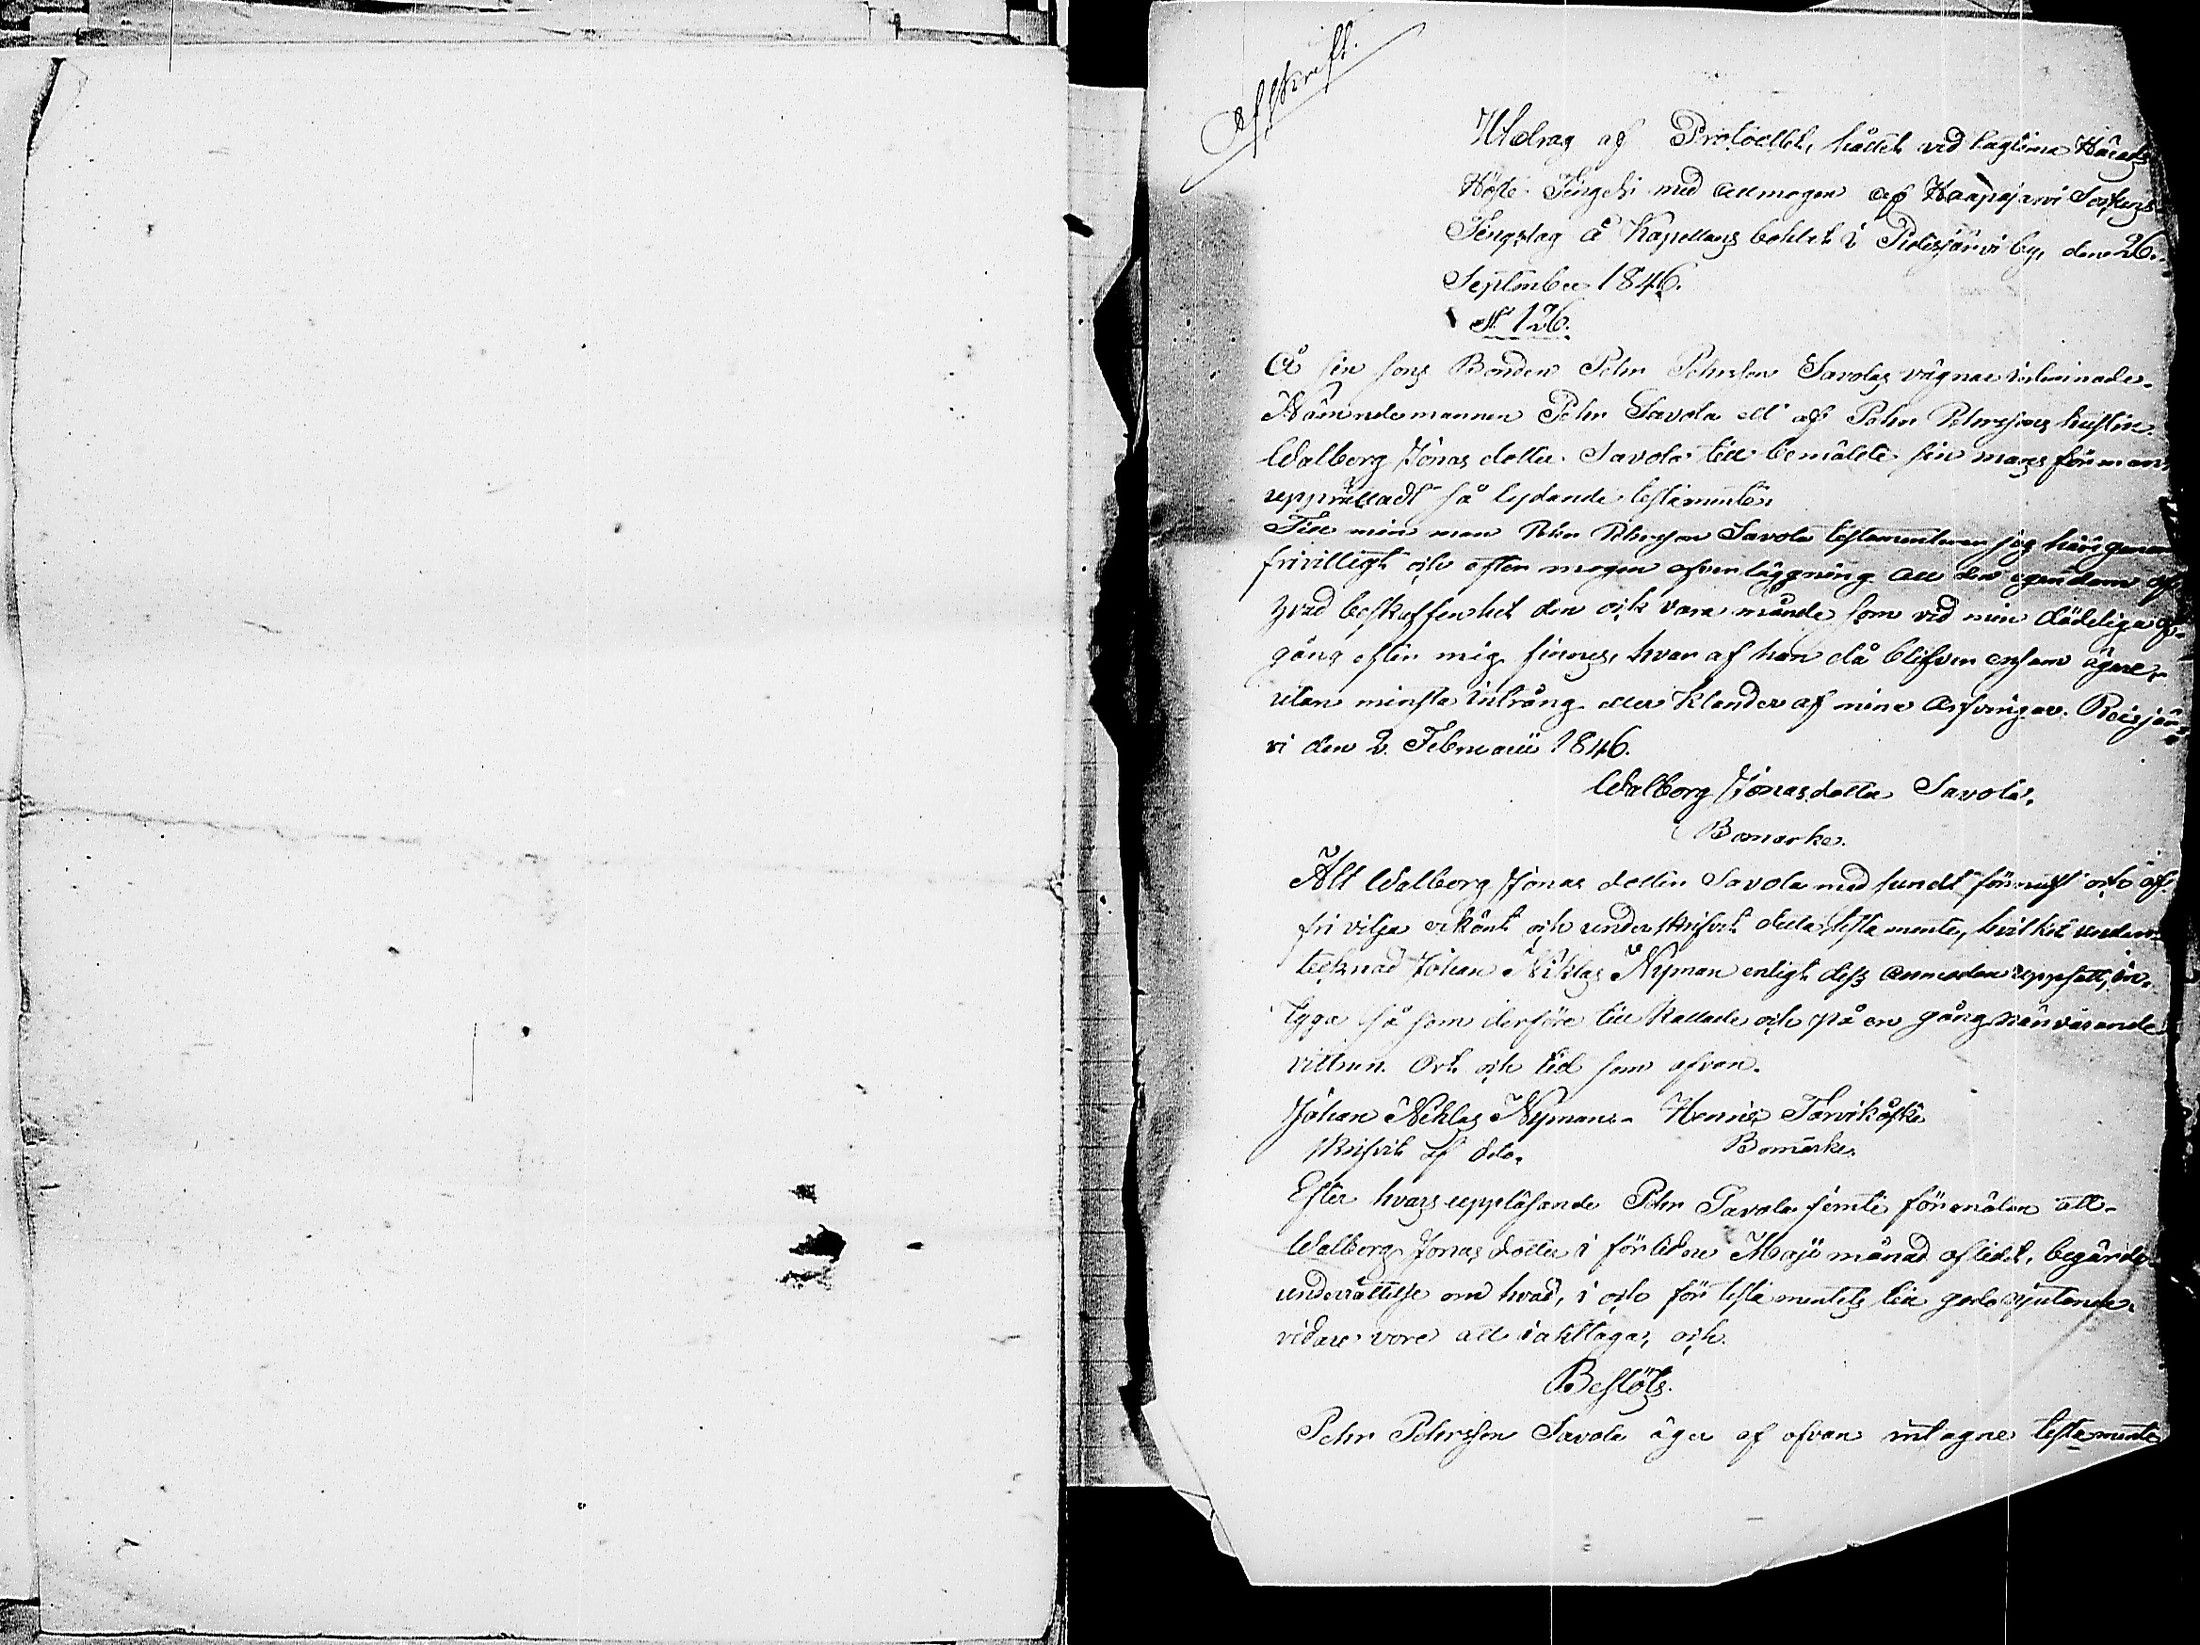 Afskrift.
Utdrag af Protocollet, hållet vid lagtima Härads
Höste Tinget med allmogen af Haapajärvi Sockens
Tingslag å Kapellans bohlet i Pidisjärvi by, den 26.
September 1846.
§ 126.
Å sin sons Bonden Pehr Pehrsson Savolas vägnar inlemnade
Nämndemannen Pehr Savola ett af Pehr Pehrssons hustru
Walborg Jonas dotter Savola till bemälte sin mans förmon
upprättadt så lydande testamente:
Till min man Pehr Pehrsson Savola testamenterar jag härigenom
frivilligt och efter mogen öfverläggning all den egendom af
hvad beskaffenhet den ock vara månde som vid min dödeliga af-
gång efter mig finnes, hvar af han då blifver ensam ägare,
utan minsta intrång eller klander af mina arfvingar. Reisjär-
vi den 2. Februarii 1846.
Walborg Jonasdotter Savola,
Bomärke.
Att Walborg Jonas dotter Savola med sundt förnuft och af
fri vilja erkänt och underskrifvit detta testamente, hvilket under-
tecknad Johan Niklas Nyman enligt dess anmodan uppsatt, in-
tyga så som derföre till kallade och på en gång närvarande
vittnen. Ort och tid som ofvan.
Johan Niklas Nyman. Henric Torvikoski
skrifvit af dito. Bomärke.
Efter hvars uppläsande Pehr Savola jemte förmälan att
Walborg Jonas dotter i förliden Maji månad aflidit, begärde
underrättelse om hvad, i och för testamentets till godo njutande,
vidare vore att iakttaga; och
Beslöts.
Pehr Pehrsson Savola äger af ofvan intagne testamente